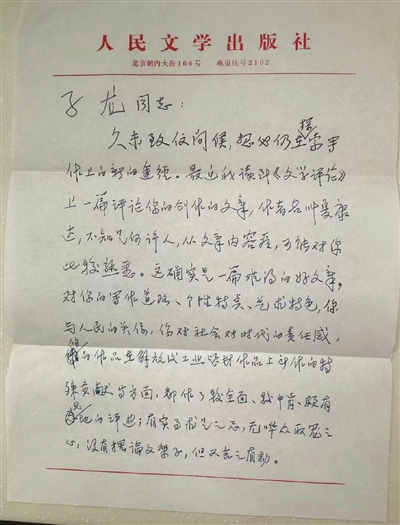 人民文学出版社
北京朝内大街166号 电报挂号2192
子龙同志:
久未致信问候,想必仍在探索写
作上的新的途径。最近我读到《文学评论》
上一篇评论你的创作的文章,作者名叫夏康
达,不知是何许人,从文章内容看,可能对你
比较熟悉。这确实是一篇难得的好文章,
对你的写作道路、个性特点、艺术特色,你
与人民的关系,你对社会对时代的责任感,
你的作品在解放后工业题材作品上所作的特
殊贡献等方面,都作了较全面、较中肯、颇有
见地的评述;有实事求是之意,无哗众取宠之
心,没有摆论文架子,但又言之有物。